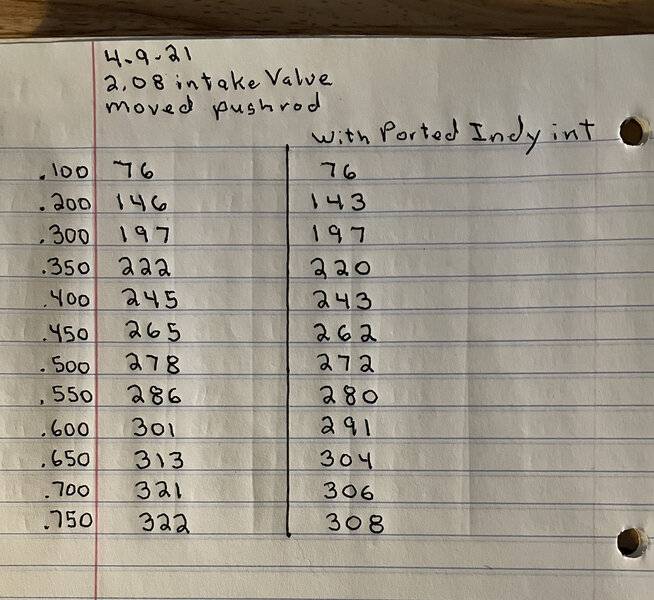 4-9-21
2.08 intake Valve
moved pushrod
With Ported Indy int
.100 76 76
.200 146 143
.300 197 197
.350 222 220
.400 245 243
.450 265 262
.500 278 272
.550 286 280
.600 301 291
.650 313 304
.700 321 306
.750 322 308